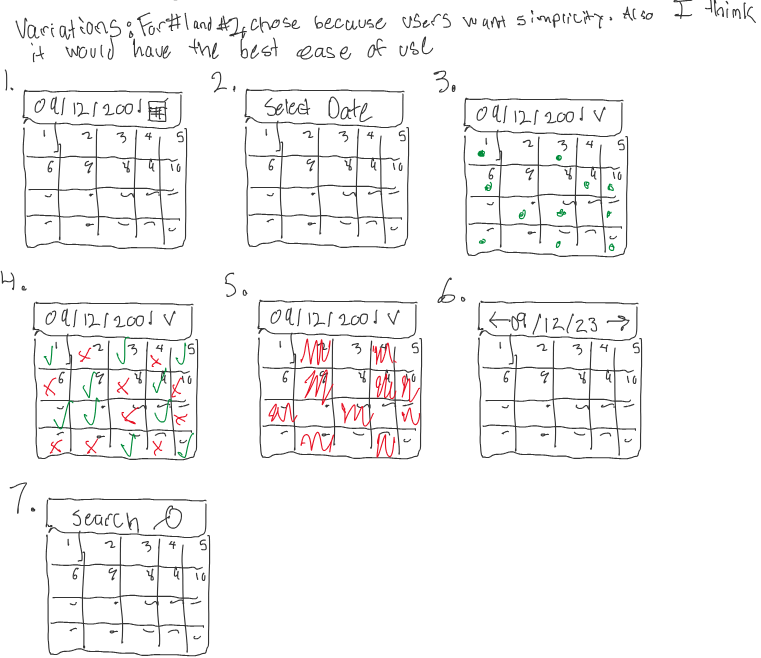 Variations: For #1 and #2, chose because users want simplicity. Also I think
it would have the best ease of use
1.
09/12/2001
1 2 3 4 5
6 9 8 4 10
2.
Select Date
1 2 3 4 5
6 9 8 4 10
3.
09/12/2001 V
1 2 3 4 5
6 9 8 4 10
4.
09/12/2001 V
1 2 3 4 5
6 9 8 4 10
5.
09/12/2001 V
1 3 5
6 8
6.
←09/12/23→
1 2 3 4 5
6 9 8 4 10
7.
Search
1 2 3 4 5
6 9 8 4 10